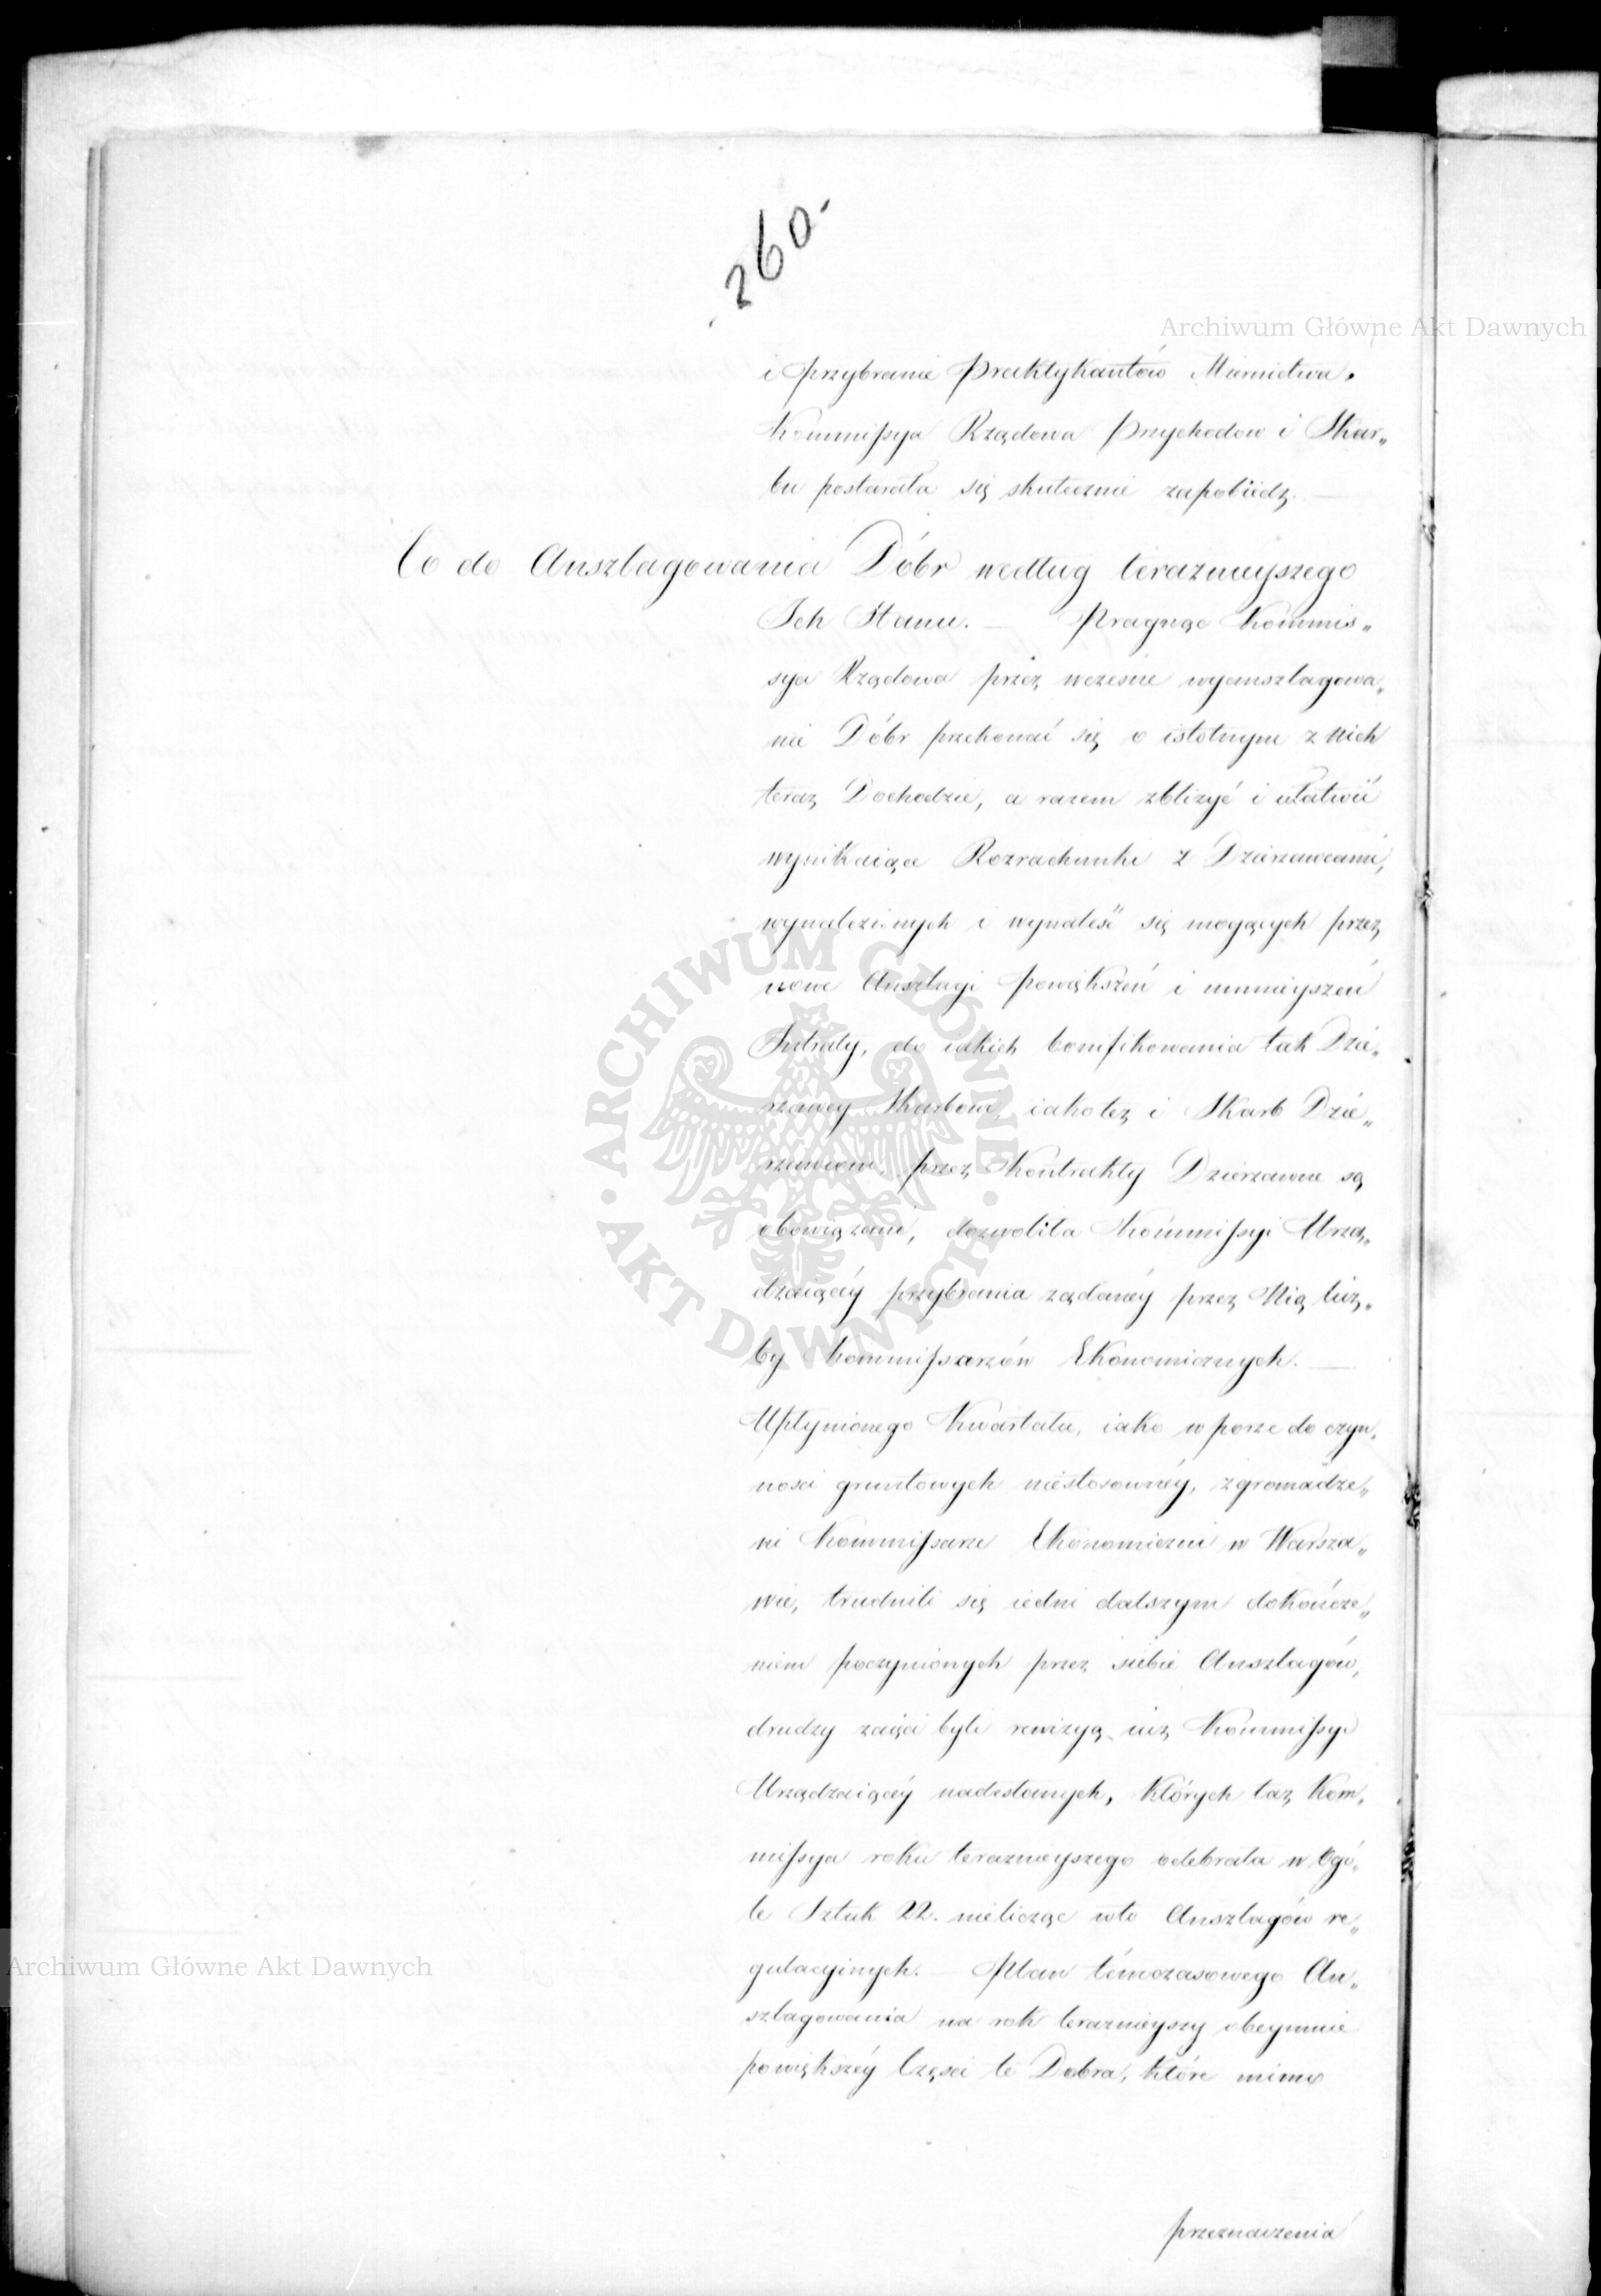 260.
i przybranie Praktykantów Miernictwa.
Kommissya Rządowa Przychodow i Skar„
bu postarała się skutecznie zapobiedz. —
Co do Anszlagowania Dóbr według teraznieyszego
Ich Stanu. — Pragnąc Kommis„
sya Rządowa przez wczesne wyanszlagowa„
nie Dóbr przekonać się o istotnym z nich
teraz Dochodzie, a razem zbliżyć i ułatwić
wynikaiące Rozrachunki z Dzierzawcami,
wynalezionych i wynaleść się mogących przez
nowe Anszlagi powiększeń i umnieyszeń
Intraty, do iakich bonifikowania tak Dzie„
rzawcy Skarbowi, iakotez i Skarb Dzie„
rzawcom, przez Kontrakty Dzierzawne są
obowiązani, dozwoliła Kommissyi Urzą„
dzaiącéy przybrania ządanéy przez Nią licz„
by Kommissarzów Ekonomicznych. —
Upłynionego Kwartału, iako w porze do czyn„
nosci gruntowych niestosownéy, zgromadze„
ni Kommissarze Ekonomiczni w Warsza„
wie, trudnili się iedni dalszym dokończe„
niem poczynionych przez siebie Anszlagów,
drudzy zaięci byli rewizyą iuz Kommissyi
Urządzaiącéy nadesłanych, których taz Kom„
missya roku teraznieyszego odebrała w Ogó„
le Sztuk 22. nielicząc wto Anszlagów re„
gulacyinych. — Plan témczasowego An„
szlagowania na rok teraznieyszy obeymuie
powiększéy Części te Dobra, które mimo
przeznaczenia
Archiwum Główne Akt Dawnych
Archiwum Główne Akt Dawnych
ARCHIWUM GŁÓWNE · AKT DAWNYCH ·